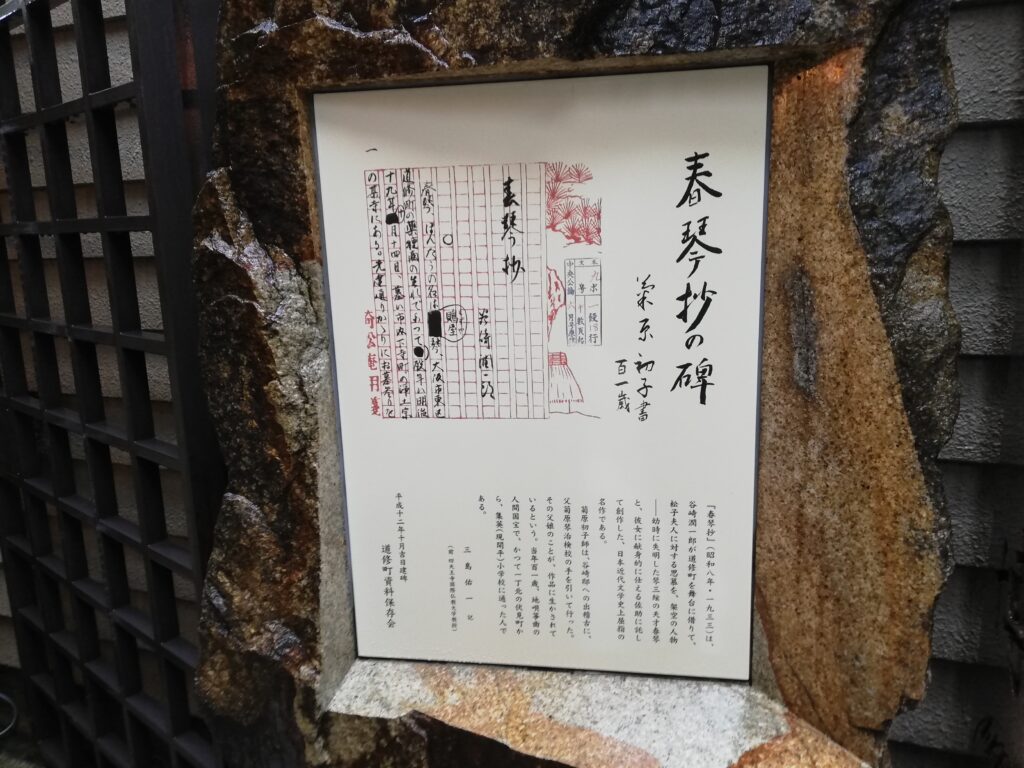 春琴抄の碑
菊原初子書
百一歳
春琴抄
谷崎潤一郎
春琴、ほんたうの名は
琴、大阪市東区
道修町の薬種商の生れで
歿年は明治
十九年
月十四日、墓は市内下寺町の浄土宗
の某寺にある。先達通りかゝりにお墓参りを
一
『春琴抄』(昭和八年・一九三三)は、
谷崎潤一郎が道修町を舞台に借りて、
松子夫人に対する思慕を、架空の人物
――幼時に失明した琴三絃の天才春琴
と、彼女に献身的に仕える佐助に託し
て創作した、日本近代文学史上屈指の
名作である。
菊原初子師は、谷崎邸への出稽古に、
父菊原琴治検校の手を引いて行った。
その父娘のことが、作品に生かされて
いるという。当年百一歳、地唄箏曲の
人間国宝で、かつて一丁北の伏見町か
ら、集英(現開平)小学校に通った人で
ある。
三島佑一 記
(前 四天王寺国際仏教大学教授)
平成十二年十月吉日建碑
道修町資料保存会